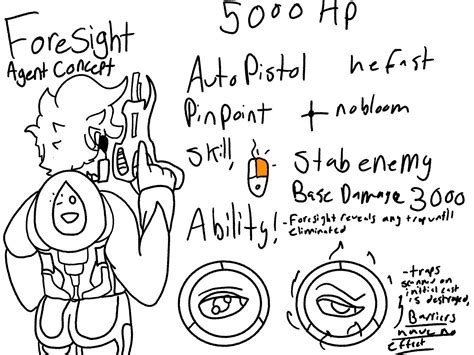 Foresight
Agent Concept
5000 Hp
Auto Pistol he fast
Pinpoint no bloom
Skill Stab enemy
Base Damage 3000
Ability! -Foresight reveals any trap untill
Eliminated
-traps
scanned on
initial cast
is destroyed,
Barriers
have no
effect